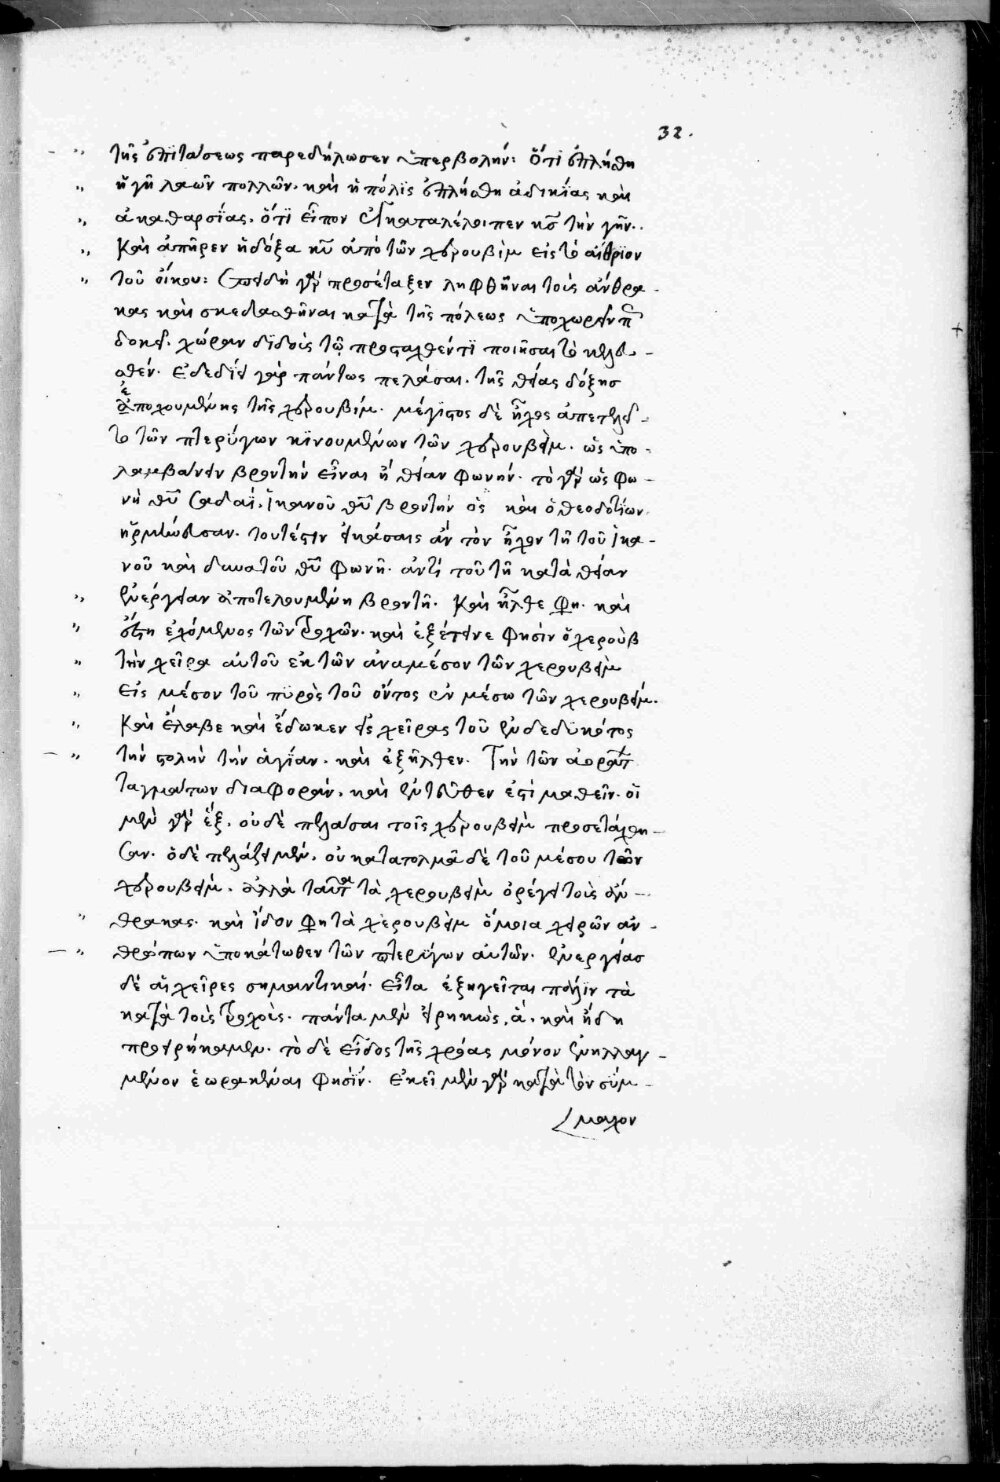 32.
τῆς ἐπιτάσεως παρεδήλωσεν ὑπερβολήν: Ὅτι ἐπλήθη
ἡ γῆ λαῶν πολλῶν. καὶ ἡ πόλις ἐπλήσθη ἀδικίας καὶ
ἀκαθαρσίας. ὅτι εἶπον ἐγκαταλέλοιπεν κς τὴν γῆν.
Καὶ ἀπῆρεν ἡ δόξα κυ ἀπὸ τῶν χερουβὶμ εἰς τὸ αἴθριον
τοῦ οἴκου: ἐπειδὴ γὰρ προσέταξεν ληφθῆναι τοὺς ἄνθρα-
κας καὶ σκεδασθῆναι κατὰ τῆς πόλεως ὑποχωρεῖν
δοκεῖ. χώραν διδοὺς τῷ προσταχθέντι ποιῆσαι τὸ κελευ-
σθέν. ἐδεδίει γὰρ πάντως πελάσαι. τῆς θείας δόξης
ἐποχουμένης τῆς χερουβίμ. μέγιστος δὲ ἦχος ἀπετελεῖ-
το τῶν πτερύγων κινουμένων τῶν χερουβείμ. ὡς ὑπο-
λαμβάνειν βροντὴν εἶναι ἢ θείαν φωνήν. τὸ γὰρ ὡς φω-
νὴ θυ Σαδαΐ. ἱκανοῦ θυ βροντὴν ὁ καὶ ὁ θεοδοτίων
ἡρμήνευσαν. τουτέστιν εἰκάσαις ἂν τὸν ἦχον τῇ τοῦ ἱκα-
νοῦ καὶ δυνατοῦ θυ φωνῇ. ἀντὶ τοῦ τῇ κατὰ θείαν
ἐνέργειαν ἀποτελουμένῃ βροντῇ. Καὶ ἦλθε φη. καὶ
ἔστη ἐχόμενος τῶν τροχῶν. καὶ ἐξέτεινε φησὶν ὁ χεροὺβ
τὴν χεῖρα αὐτοῦ ἐκ τῶν ἀναμέσον τῶν χερουβεὶμ
εἰς μέσον τοῦ πυρὸς τοῦ ὄντος ἐν μέσω τῶν χερουβείμ.
Καὶ ἔλαβε καὶ ἔδωκεν εἰς χεῖρας τοῦ ἐνδεδυκότος
τὴν στολὴν τὴν ἁγίαν. καὶ ἐξῆλθεν. Τὴν τῶν ἀοράτων
ταγμάτων διαφοράν. καὶ ἐντεῦθεν ἔστι μαθεῖν. οἱ
μὲν γὰρ ἕξ. οὐδὲ πελάσαι τοῖς χερουβεὶμ προσετάχθη-
σαν. ὁ δὲ πελάζει μέν. οὐ κατατολμᾶ δὲ τοῦ μέσου τῶν
χερουβείμ. ἀλλὰ ταῦτα τὰ χερουβεὶμ ὀρέγει τοὺς ἄν-
θρακας. καὶ ἴδον φη τὰ χερουβεὶμ ὅμοια χειρῶν ἀν-
θρώπων ὑποκάτωθεν τῶν πτερύγων αὐτῶν. ἐνεργείας
δὲ αἱ χεῖρες σημαντικαί. εἶτα ἐξηγεῖται πάλιν τὰ
κατὰ τοὺς τροχούς. πάντα μὲν εἰρηκώς, ἃ. καὶ ἤδη
προειρήκαμεν. τὸ δὲ εἶδος τῆς χρόας μόνον ἐνηλλαγ-
μένον ἑωρακέναι φησίν. ἐκεῖ μὲν γὰρ κατὰ τὸν σύμ-
μαχον